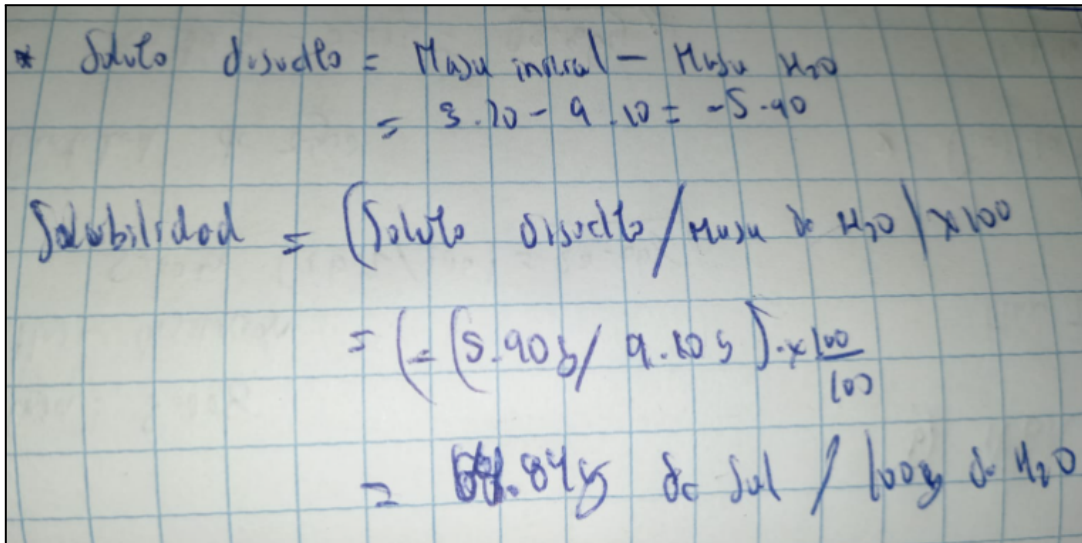 * Soluto disuelto = Masa inicial - Masa H2O
= 3.20 - 9.10 = -5.90
Solubilidad = (Soluto disuelto / Masa de H2O) x 100
= (-(5.90g / 9.10g) x 100/100
= .84g de sal / 100g de H2O